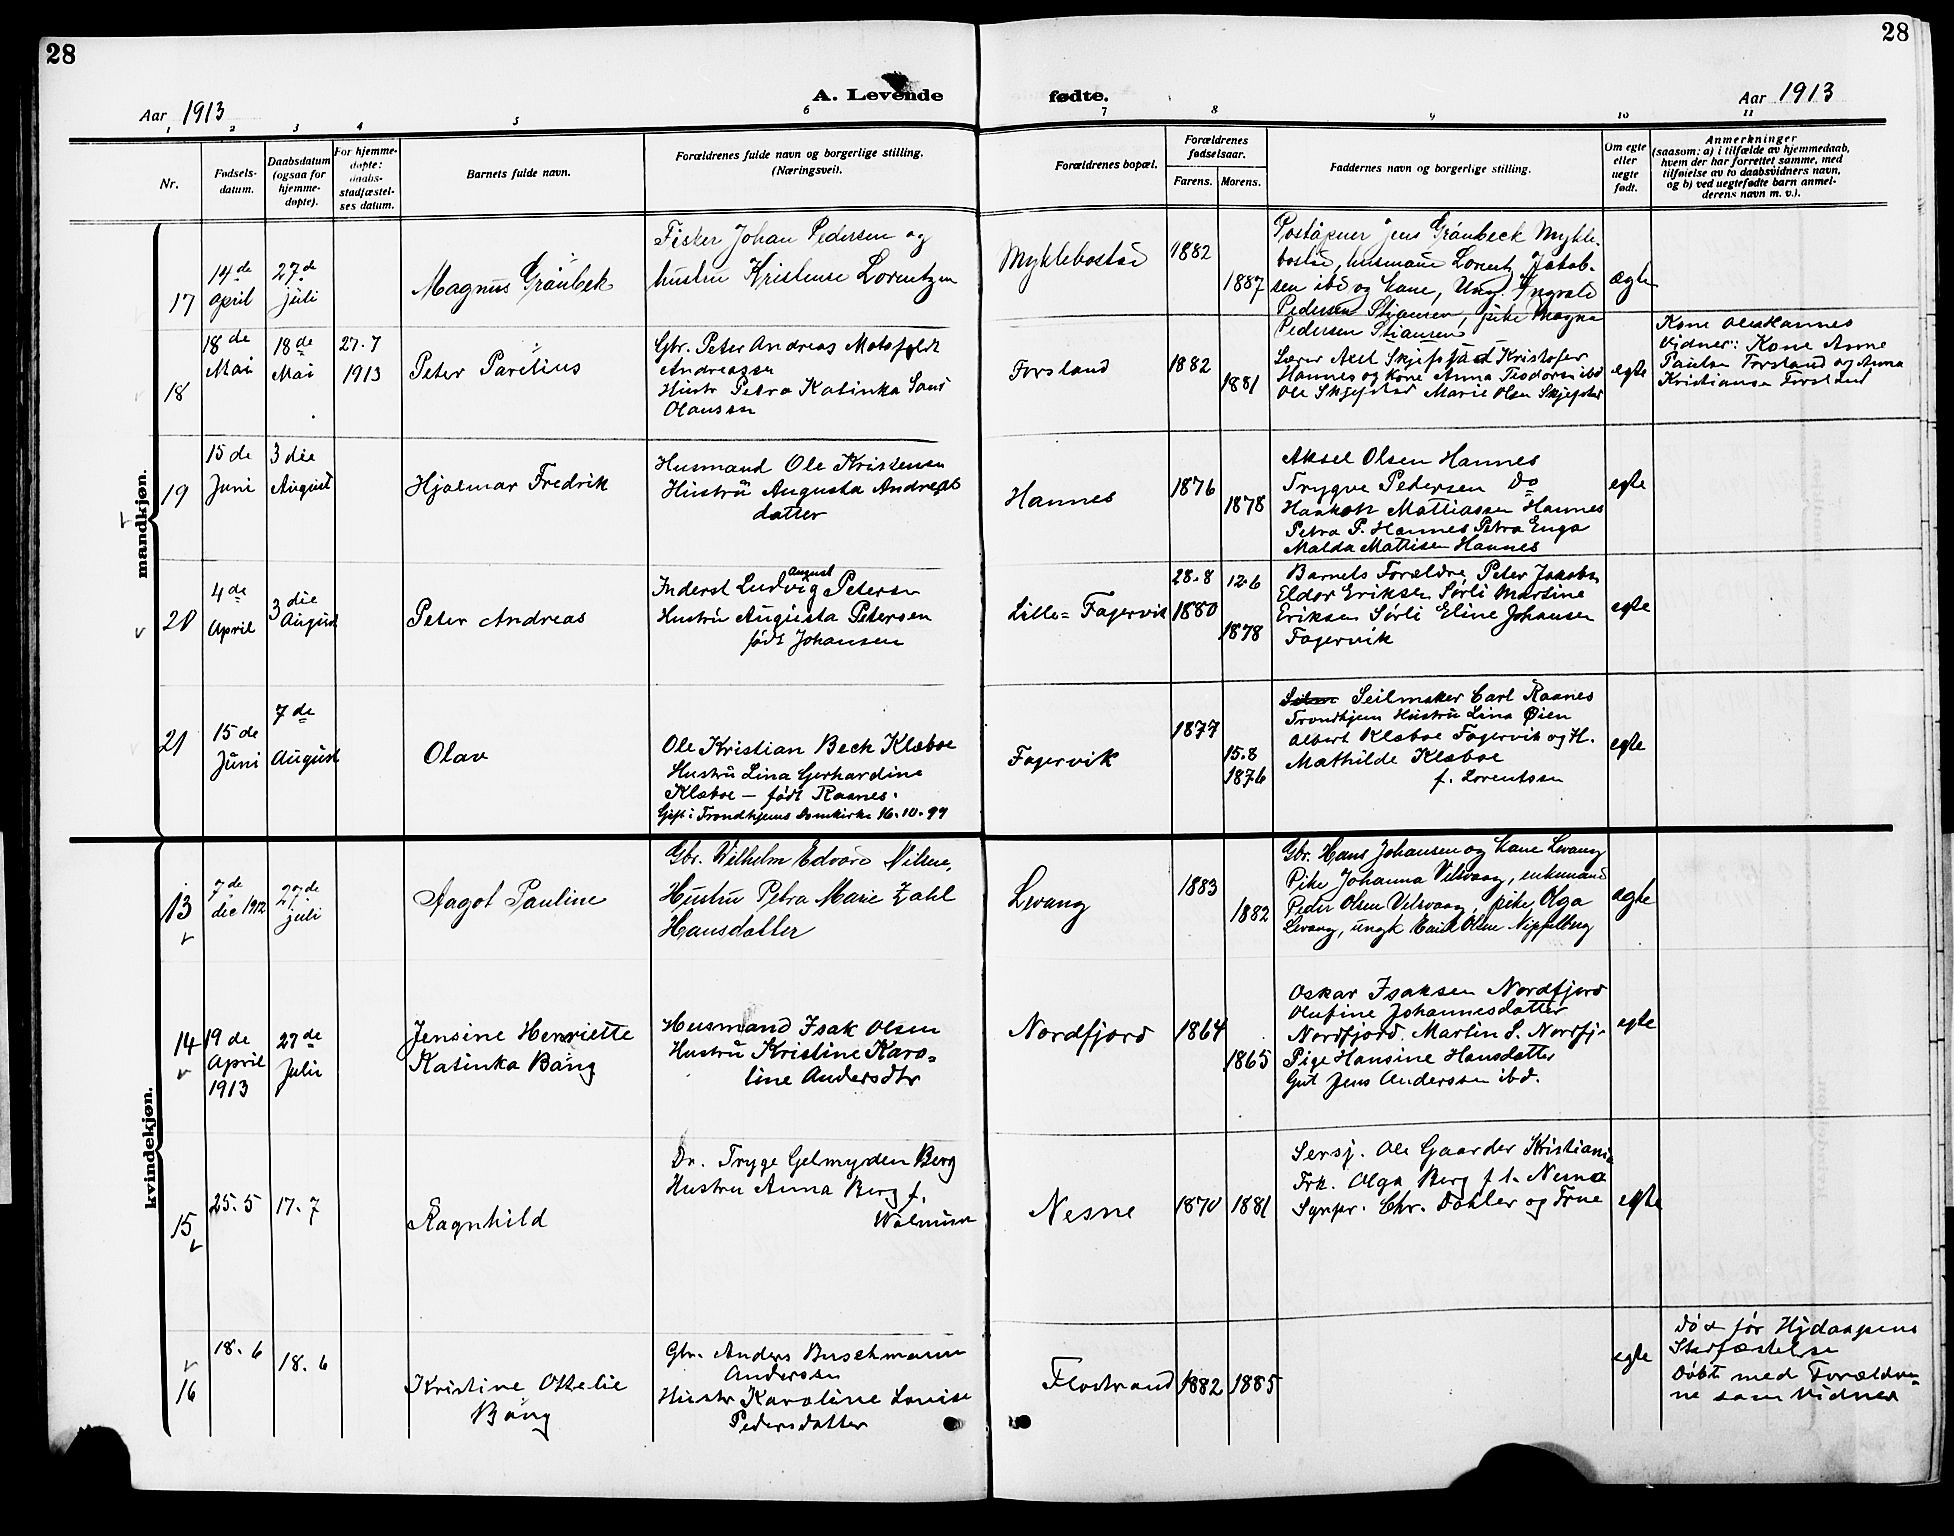 28
28
A. Levende fødte.
Aar 1913
Aar 1913
1 2 3 4 5 6 7 8 9 10 11
Nr.
Fødsels-
datum.
Daabsdatum
(ogsaa for
hjemme-
døpte).
For hjemme-
døpte:
daabs-
stadfæstel-
ses datum.
Barnets fulde navn.
Forældrenes fulde navn og borgerlige stilling.
(Næringsvei).
Forældrenes bopæl.
Forældrenes
fødselsaar.
Farens. Morens.
Faddernes navn og borgerlige stilling.
Om egte
eller
uegte
født.
Anmerkninger
(saasom: a) i tilfælde av hjemmedaab,
hvem der har forrettet samme, med
tilføielse av to daabsvidners navn,
og b) ved uegtefødte barn anmel-
derens navn m. v.).
mandkjøn.
17
14de
april
27de
juli
Magnus Grønbek
Fisker Johan Pedersen og
hustru Kristense Lorentzen
Myklebostad
1882
1887
Postaapner Jens Grønbeck Mykle-
bostad, husmand Lorents Jakob-
sen ibd og kone, Ung. Ingvald
Pedersen Stiansen, pike Magna
Pedersen Stiansen
ægte
18
18de
Mai
18de
Mai
27.7
1913
Peter Parelius
Gbr. Peter Andreas Motsfeldt
Andreassen
Hustr Petra Katinka
Olaussen
Forsland
1882
1881
Lærer Axel Skjefstad Kristofer
Hannes og Kone Anna Teodorsen ibd
Ole Skjefstad Marie Olsen Skjefstad
egte
Kone Hannes
Vidner: Kone Anne
Paulsen Forsland og Anna
Kristiansen Forsland
19
15de
Juni
3die
August
Hjalmar Fredrik
Husmand Ole Kristensen
Hustru Augusta Andreas
datter
Hannes
1876
1878
Aksel Olsen Hannes
Trygve Pedersen Do
Haakon Mattiassen Hannes
Petra P. Hannes Petra Enga
Malda Mattisen Hannes
egte
20
4de
April
3die
August
Peter Andreas
Inderst Ludvig August Petersen
Hustru Augusta Petersen
født Johansen
Lille-Fagervik
28.8
1880
12.6
1878
Barnets Forældre Peter Jakobsn
Eldor Eriksen Sørli Martine
Eriksen Sørli Eline Johansen
Fagervik
egte
21
15de
Juni
7de
August
Olav
Ole Kristian Beck Klæboe
Hustru Lina Gerhardine
Klæboe - født Raanes.
Gift i Trondhjems Domkirke 16.10.99
Fagervik
1877
15.8
1876
Seilmaker Carl Raanes
Trondhjem Hustru Lina Øien
Albert Klæboe Fagervik og H.
Mathilde Klæboe
f. Lorentsen
egte
kvindekjøn.
13
7de
dec 1912
27de
juli
Aagot Pauline
Gbr. Wilhelm Edvard Nilsen,
Hustru Petra Marie Zahl
Hansdatter
Levang
1883
1882
Gbr. Hans Johansen og kone Levang
Pike Johanna Vilsvaag, enkemand
Peder Olsen Vilsvaag, pike Olga
Levang, ungk Olsen
ægte
14
19de
April
1913
27de
Juli
Jensine Henriette
Katinka Bang
Husmand Isak Olsen
Hustru Kristine Karo-
line Andersdtr
Nordfjord
1864
1865
Oskar Isaksen Nordfjord
Olufine Johannesdatter
Nordfjord. Martin S. Nordfj.
Pige Hansine Hansdatter
Gut Jens Anderssen ibd.
egte
15
25.5
17.7
Ragnhild
Dr. Tryge Gelmyden Berg
Hustru Anna Berg f.
Nesne
1870
1881
Sersj. Ole Gaarder Kristiania
Frk. Olga Berg f. t. Nesna
Chr. Dahler og Frue
egte
16
18.6
18.6
Kristine Ottelie
Bang
Gbr. Anders Buschmann
Anderssen
Hustr Karoline Lovise
Pedersdatter
Flostrand
1882
1885
egte
Død før Hjdaapens
Stadfæstelse
Døbt med Forældre-
ne som Vidner